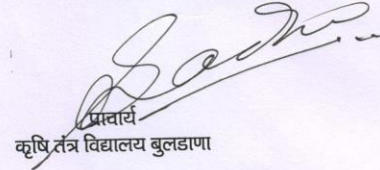 प्राचार्य
कृषि तंत्र विद्यालय बुलडाणा